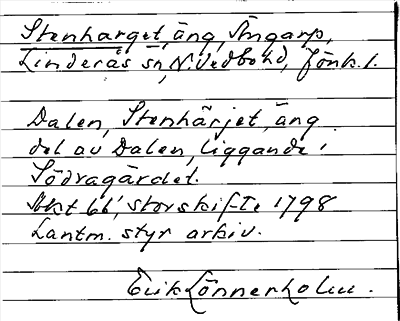 Stenharget, äng, Stngarp,
Linderås sn, N. Vedbohd, Jönk. l.
Dalen, Stenhärjet, äng
del av Dalen, liggande i
Södragärdet.
Akt 66, storskifte 1798
Lantm. styr arkiv.
Erik Lönnerholm.